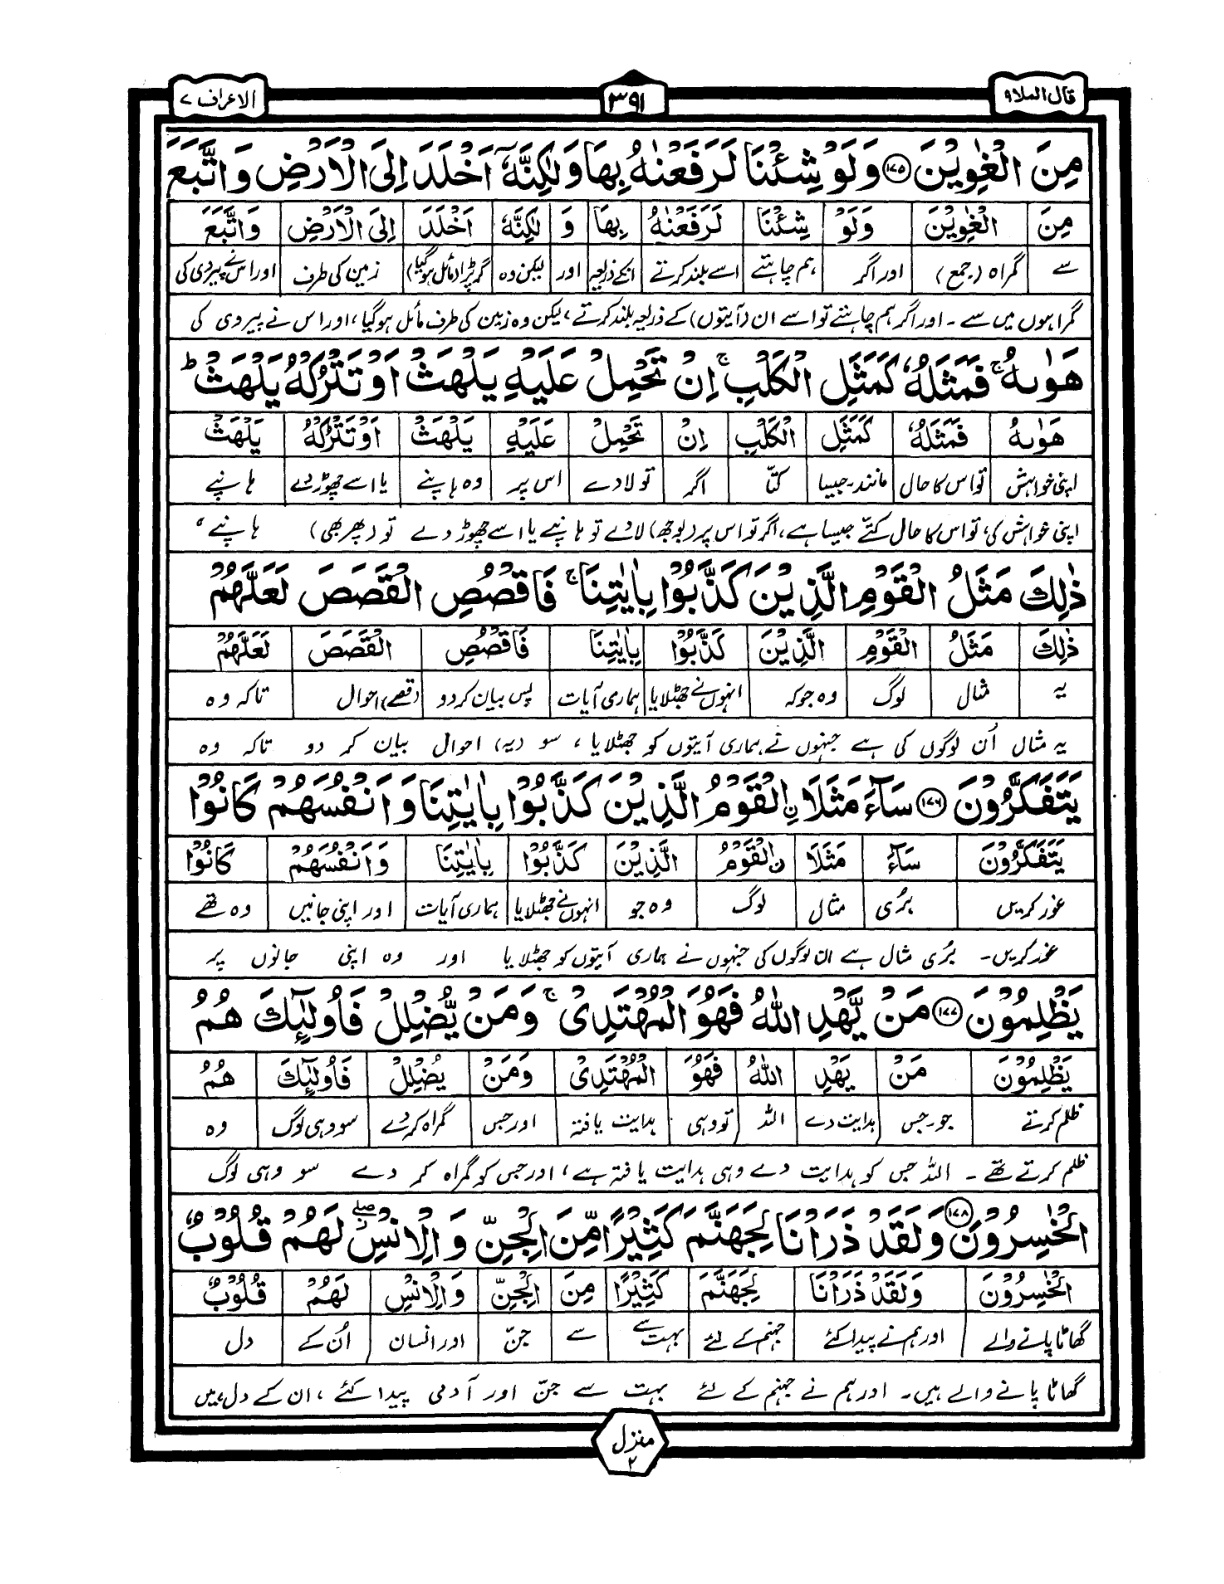 قال الملا ۹
۳۹۱
الاعراف ۷
مِنَ الْغٰوِيْنَ ۝۱۷۵ وَلَوْ شِئْنَا لَرَفَعْنٰهُ بِهَا وَلٰكِنَّهٗۤ اَخْلَدَ اِلَى الْاَرْضِ وَاتَّبَعَ
مِنَ الْغٰوِيْنَ وَلَوْ شِئْنَا لَرَفَعْنٰهُ بِهَا وَ لٰكِنَّهٗ اَخْلَدَ اِلَى الْاَرْضِ وَاتَّبَعَ
سے گمراہ (جمع) اور اگر ہم چاہتے اسے بلند کرتے انکے ذریعہ اور لیکن وہ گر پڑا (مائل ہوگیا) زمین کی طرف اور اس نے پیروی کی
گمراہوں میں سے ۔ اور اگر ہم چاہتے تو اسے ان (آیتوں) کے ذریعہ بلند کرتے، لیکن وہ زمین کی طرف مائل ہوگیا، اور اس نے پیروی کی
هَوٰىهُ ۚ فَمَثَلُهٗ كَمَثَلِ الْكَلْبِ ۚ اِنْ تَحْمِلْ عَلَيْهِ يَلْهَثْ اَوْ تَتْرُكْهُ يَلْهَثْ ؕ
هَوٰىهُ فَمَثَلُهٗ كَمَثَلِ الْكَلْبِ اِنْ تَحْمِلْ عَلَيْهِ يَلْهَثْ اَوْ تَتْرُكْهُ يَلْهَثْ
اپنی خواہش تو اس کا حال مانند۔جیسا کتّا اگر تو لادے اس پر وہ ہانپے یا اسے چھوڑ دے ہانپے
اپنی خواہش کی، تو اس کا حال کتّے جیسا ہے، اگر تو اس پر (بوجھ) لادے تو ہانپے یا اسے چھوڑ دے تو (پھر بھی) ہانپے ،
ذٰلِكَ مَثَلُ الْقَوْمِ الَّذِيْنَ كَذَّبُوْا بِاٰيٰتِنَا ۚ فَاقْصُصِ الْقَصَصَ لَعَلَّهُمْ
ذٰلِكَ مَثَلُ الْقَوْمِ الَّذِيْنَ كَذَّبُوْا بِاٰيٰتِنَا فَاقْصُصِ الْقَصَصَ لَعَلَّهُمْ
یہ مثال لوگ وہ جو کہ انہوں نے جھٹلایا ہماری آیات پس بیان کر دو (قصے) احوال تاکہ وہ
یہ مثال اُن لوگوں کی ہے جنہوں نے ہماری آیتوں کو جھٹلایا ، سو (یہ) احوال بیان کر دو تاکہ وہ
يَتَفَكَّرُوْنَ ۝۱۷۶ سَآءَ مَثَلَا ۨالْقَوْمُ الَّذِيْنَ كَذَّبُوْا بِاٰيٰتِنَا وَاَنْفُسَهُمْ كَانُوْا
يَتَفَكَّرُوْنَ سَآءَ مَثَلَا ۨالْقَوْمُ الَّذِيْنَ كَذَّبُوْا بِاٰيٰتِنَا وَاَنْفُسَهُمْ كَانُوْا
غور کریں بری مثال لوگ وہ جو انہوں نے جھٹلایا ہماری آیات اور اپنی جانیں وہ تھے
غور کریں۔ بُری مثال ہے ان لوگوں کی جنہوں نے ہماری آیتوں کو جھٹلایا اور وہ اپنی جانوں پر
يَظْلِمُوْنَ ۝۱۷۷ مَنْ يَّهْدِ اللّٰهُ فَهُوَ الْمُهْتَدِيْ ۚ وَمَنْ يُّضْلِلْ فَاُولٰٓئِكَ هُمُ
يَظْلِمُوْنَ مَنْ يَهْدِ اللّٰهُ فَهُوَ الْمُهْتَدِيْ وَمَنْ يُضْلِلْ فَاُولٰٓئِكَ هُمُ
ظلم کرتے جو۔جس ہدایت دے اللہ تو وہی ہدایت یافتہ اور جس گمراہ کردے سو وہی لوگ وہ
ظلم کرتے تھے ۔ اللہ جس کو ہدایت دے وہی ہدایت یافتہ ہے، اور جس کو گمراہ کر دے سو وہی لوگ
الْخٰسِرُوْنَ ۝۱۷۸ وَلَقَدْ ذَرَاْنَا لِجَهَنَّمَ كَثِيْرًا مِّنَ الْجِنِّ وَالْاِنْسِ ۖ لَهُمْ قُلُوْبٌ
الْخٰسِرُوْنَ وَلَقَدْ ذَرَاْنَا لِجَهَنَّمَ كَثِيْرًا مِنَ الْجِنِّ وَالْاِنْسِ لَهُمْ قُلُوْبٌ
گھاٹا پانے والے اور ہم نے پیدا کئے جہنم کے لئے بہت سے سے جنّ اور انسان اُن کے دل
گھاٹا پانے والے ہیں۔ اور ہم نے جہنم کے لئے بہت سے جنّ اور آدمی پیدا کئے ، ان کے دل ہیں
منزل ۲